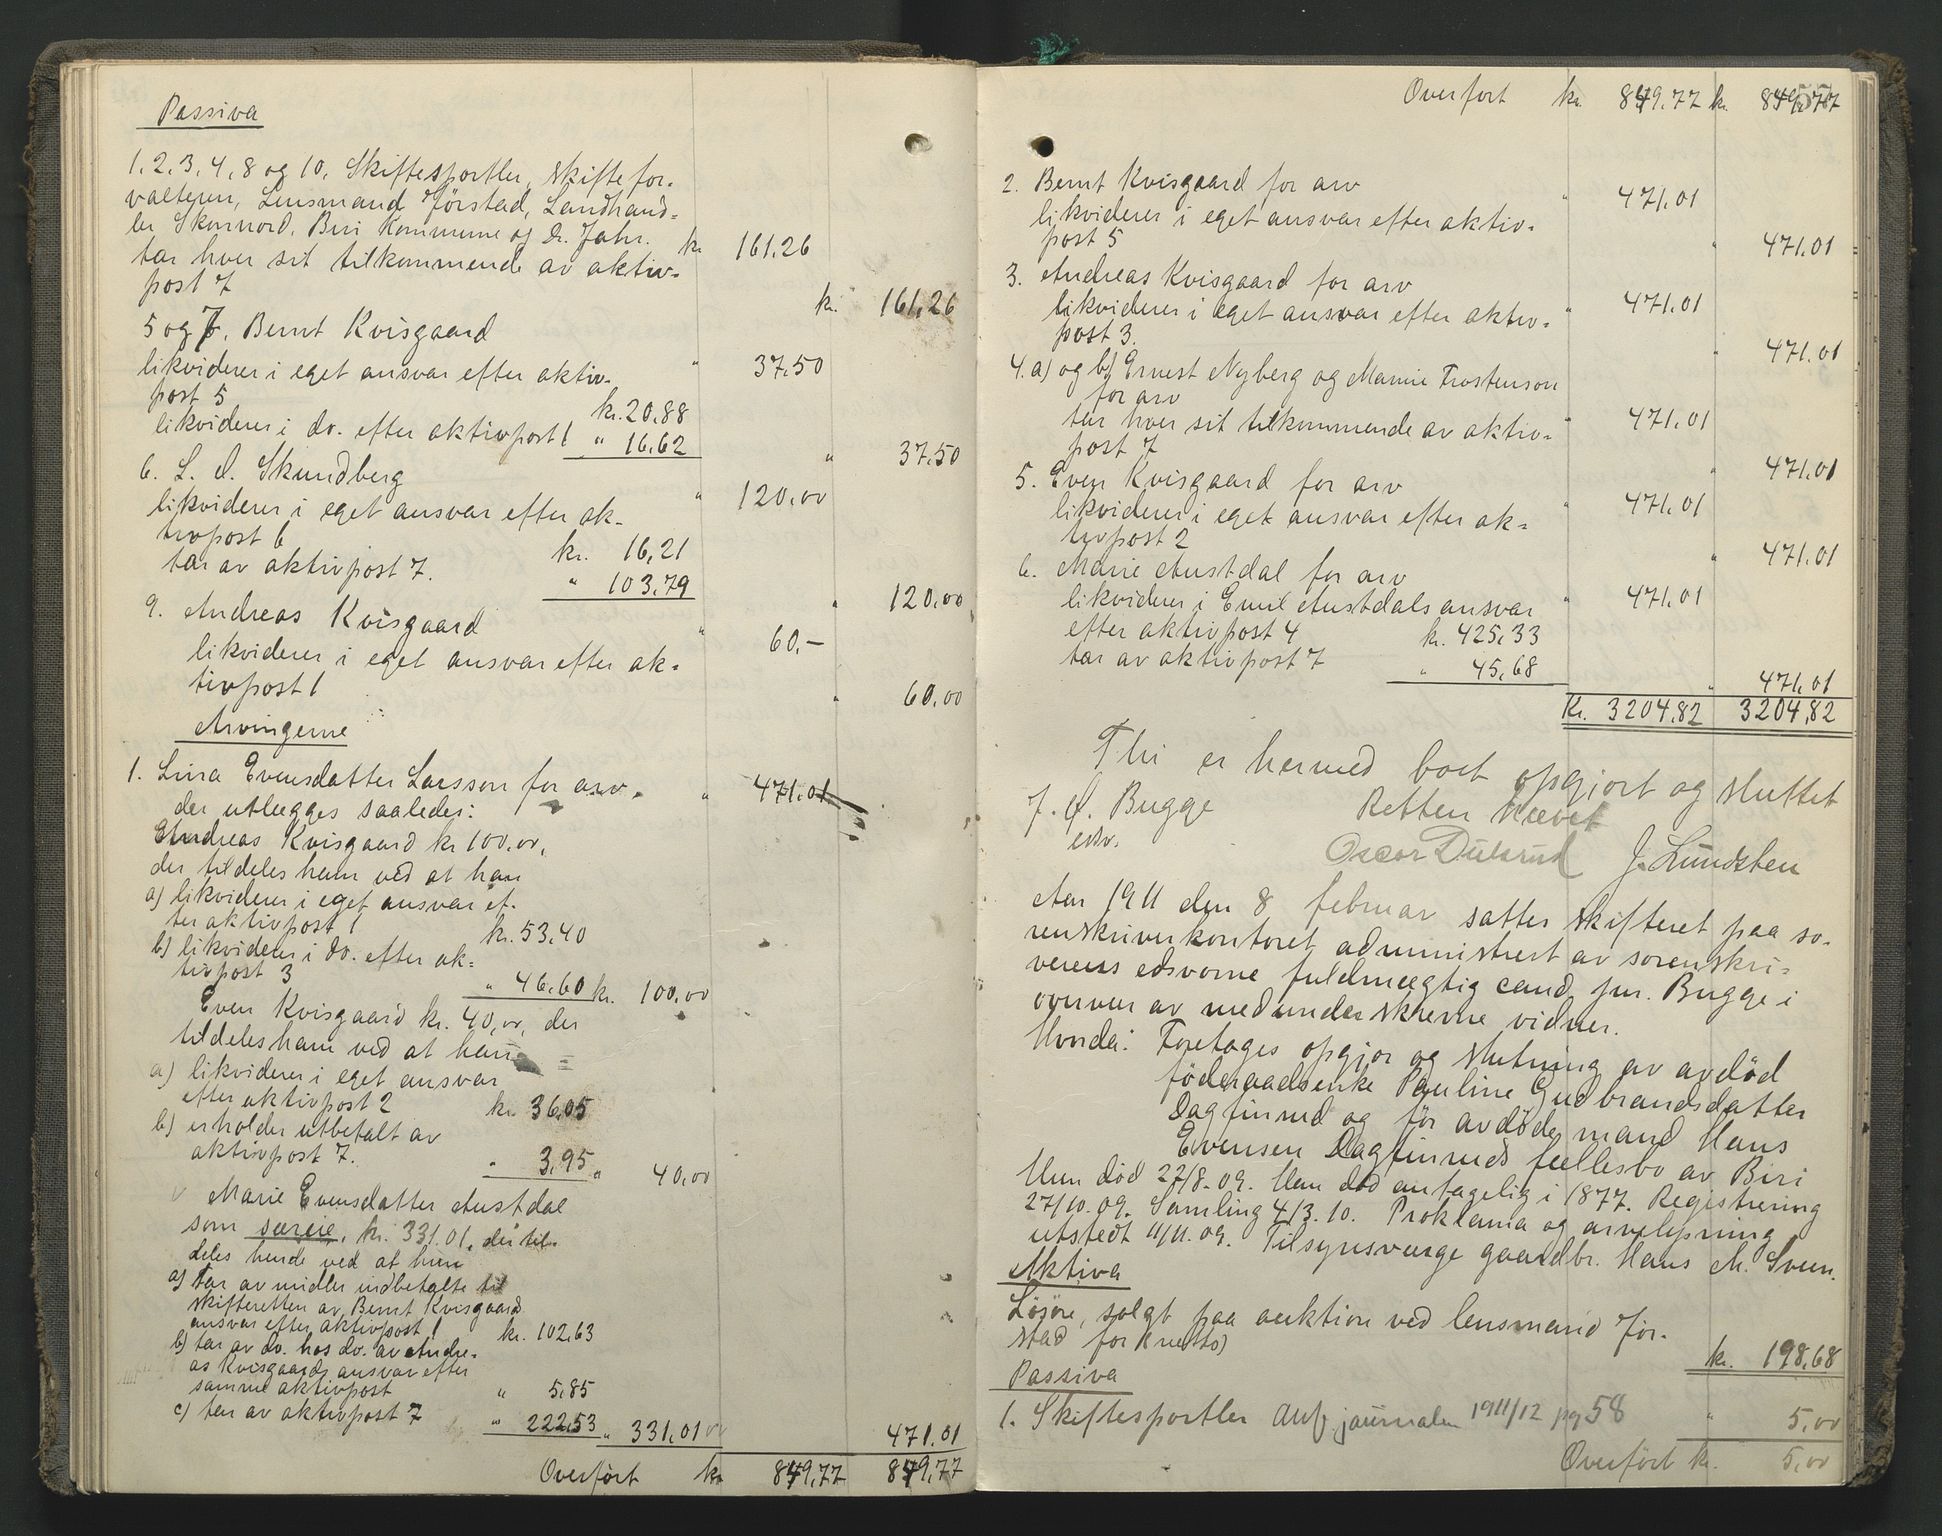 Passiva
1, 2, 3, 4, 8 og 10. Skiftesportler, skiftefor-
valteren, Lensmand Jörstad, Landhand=
ler Skonnord, Biri Kommune og Dr. Jahr. kr 161,26
tar hver sit tilkommende av aktiv-
post 7 kr. 161,26
5 og 7. Bernt Kvisgaard " 37,50
likviderer i eget ansvar efter aktiv-
post 5 kr. 20,88
likviderer i do. efter aktivpost 1 " 16,62 " 37,50
6. L. O. Skundberg " 120,00
likviderer i eget ansvar efter ak-
tivpost 6 kr. 16,21
tar av aktivpost 7. " 103,79 " 120,00
9. Andreas Kvisgaard " 60,-
likviderer i eget ansvar efter ak-
tivpost 1 " 60,00
Arvingerne
1. Lina Evensdatter Larsson for arv. " 471,01
der utlægges saaledes:
Andreas Kvisgaard kr 100,00,
der tildeles ham ved at han
a) likviderer i eget ansvar ef-
ter aktivpost 1 kr. 53,40
b) likviderer i do. efter ak=
tivpost 3 " 46,60 kr. 100,00
Even Kvisgaard kr. 40,00, der
tildeles ham ved at han
a) likviderer i eget ansvar
efter aktivpost 2 kr. 36,05
b) erholder utbetalt av
aktivpost 7. " 3,95 " 40,00
Marie Evensdatter Austdal
som særeie, kr. 331,01, der til-
deles hende ved at hun
a) tar av midler indbetalte til
skifteretten av Bernt Kvisgaard
ansvar efter aktivpost 1 kr. 102,63
b) tar av do. hos do. av Andre-
as Kvisgaards ansvar efter
samme aktivpost " 5,85
c) tar av aktivpost 7 " 222,53 " 331,01 471,01
Overført kr 849,77 849,77
Overført kr. 849,77 kr. 849,77
2. Bernt Kvisgaard for arv " 471,01
likviderer i eget ansvar efter aktiv-
post 5 " 471,01
3. Andreas Kvisgaard for arv
likviderer i eget ansvar efter aktiv- " 471,01
post 3. " 471,01
4. a) og b) Ernest Nyberg og Mamie Frostenson
for arv
tar hver sit tilkommende av aktiv= " 471,01
post 7 " 471,01
5. Even Kvisgaard for arv " 471,01
likviderer i eget ansvar efter ak=
tivpost 2 " 471,01
6. Marie Austdal for arv
likviderer i Emil Austdals ansvar " 471,01
efter aktivpost 4 kr. 425,33
tar av aktivpost 7 " 45,68 " 471,01
Kr. 3204,82 3204,82
Thi er hermed boet opgjort og sluttet
Retten hævet
J. Ø. Bugge
edsv.
Oscar Dulsrud J. Lundsten
Aar 1911 den 8 februar sattes skifteret paa so-
renskriverkontoret, administrert av sorenskri-
verens edsvorne fuldmægtig cand. jur. Bugge i
overvær av medunderskrevne vidner.
Hvorda: Foretages opgjør og slutning av avdöd
föderaadsenke Pauline Gudbrandsdatter
Dagfinrud og før avdöde mand Hans
Evensen Dagfinruds fællesbo av Biri
Hun död 22/8-09. Han död antagelig i 1877. Registrering
27/10.09. Samling 4/3.10. Proklama og arvelysning
utstedt 11/11.09. Tilsynsværge gaardbr. Hans M. Sveen.
Aktiva
Lösöre, solgt paa auktion ved lensmand Jör-
stad for (netto) kr. 198,68
Passiva
1. Skiftesportler anf. journalen 1911/12 pg 58 " 5,00
Overført kr. 5,00